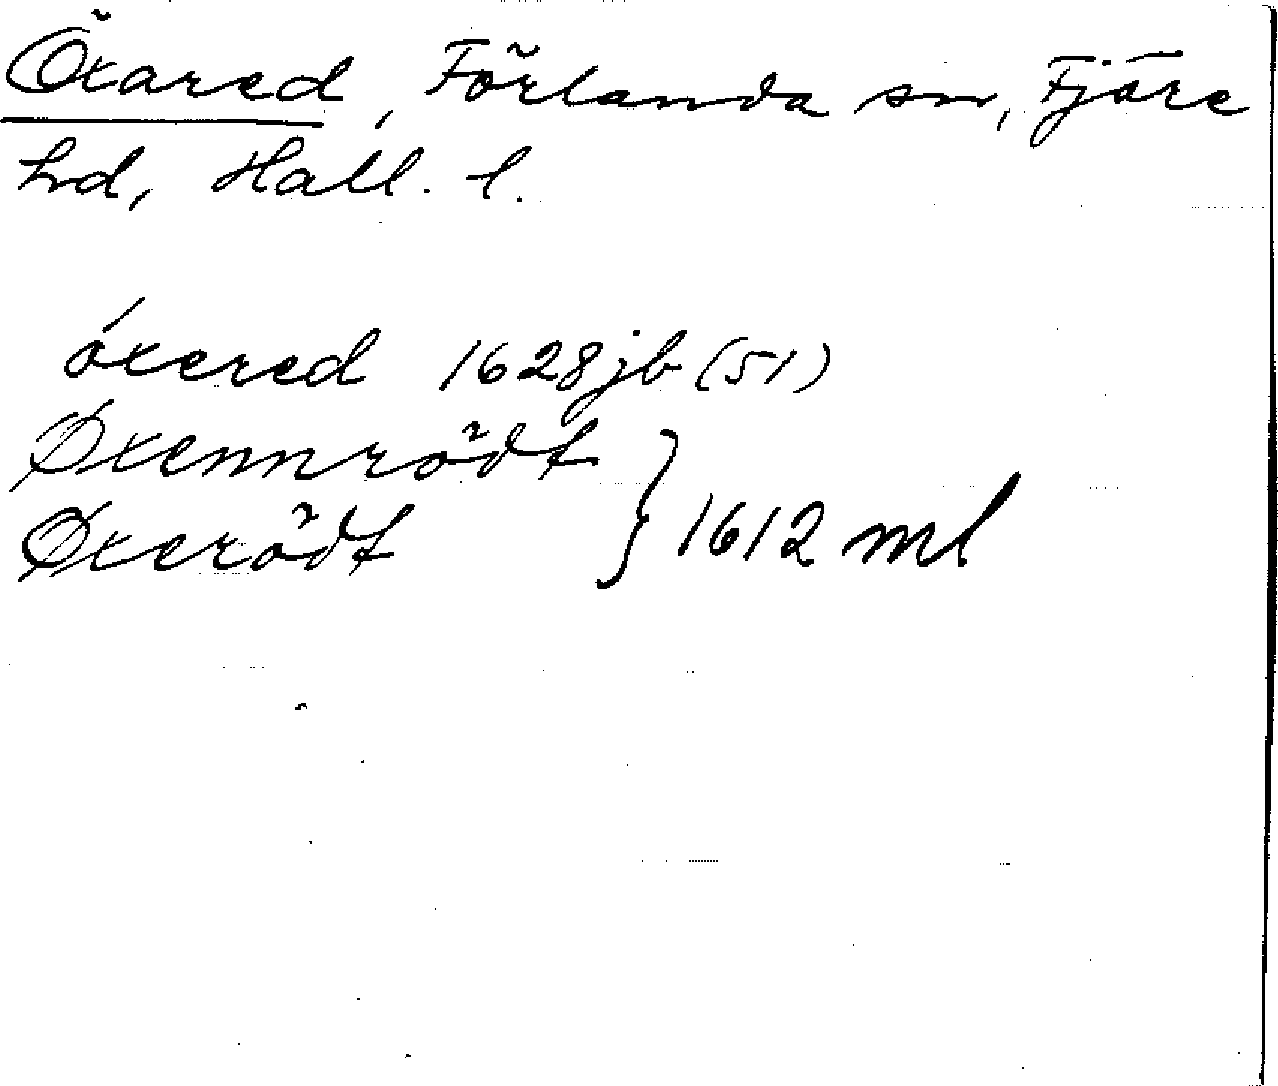 Öxared, Förlanda sn, Fjäre
hd, Hall. l.
óxered 1628 jb (51)
Øxennrödt
Øxerödt } 1612 ml